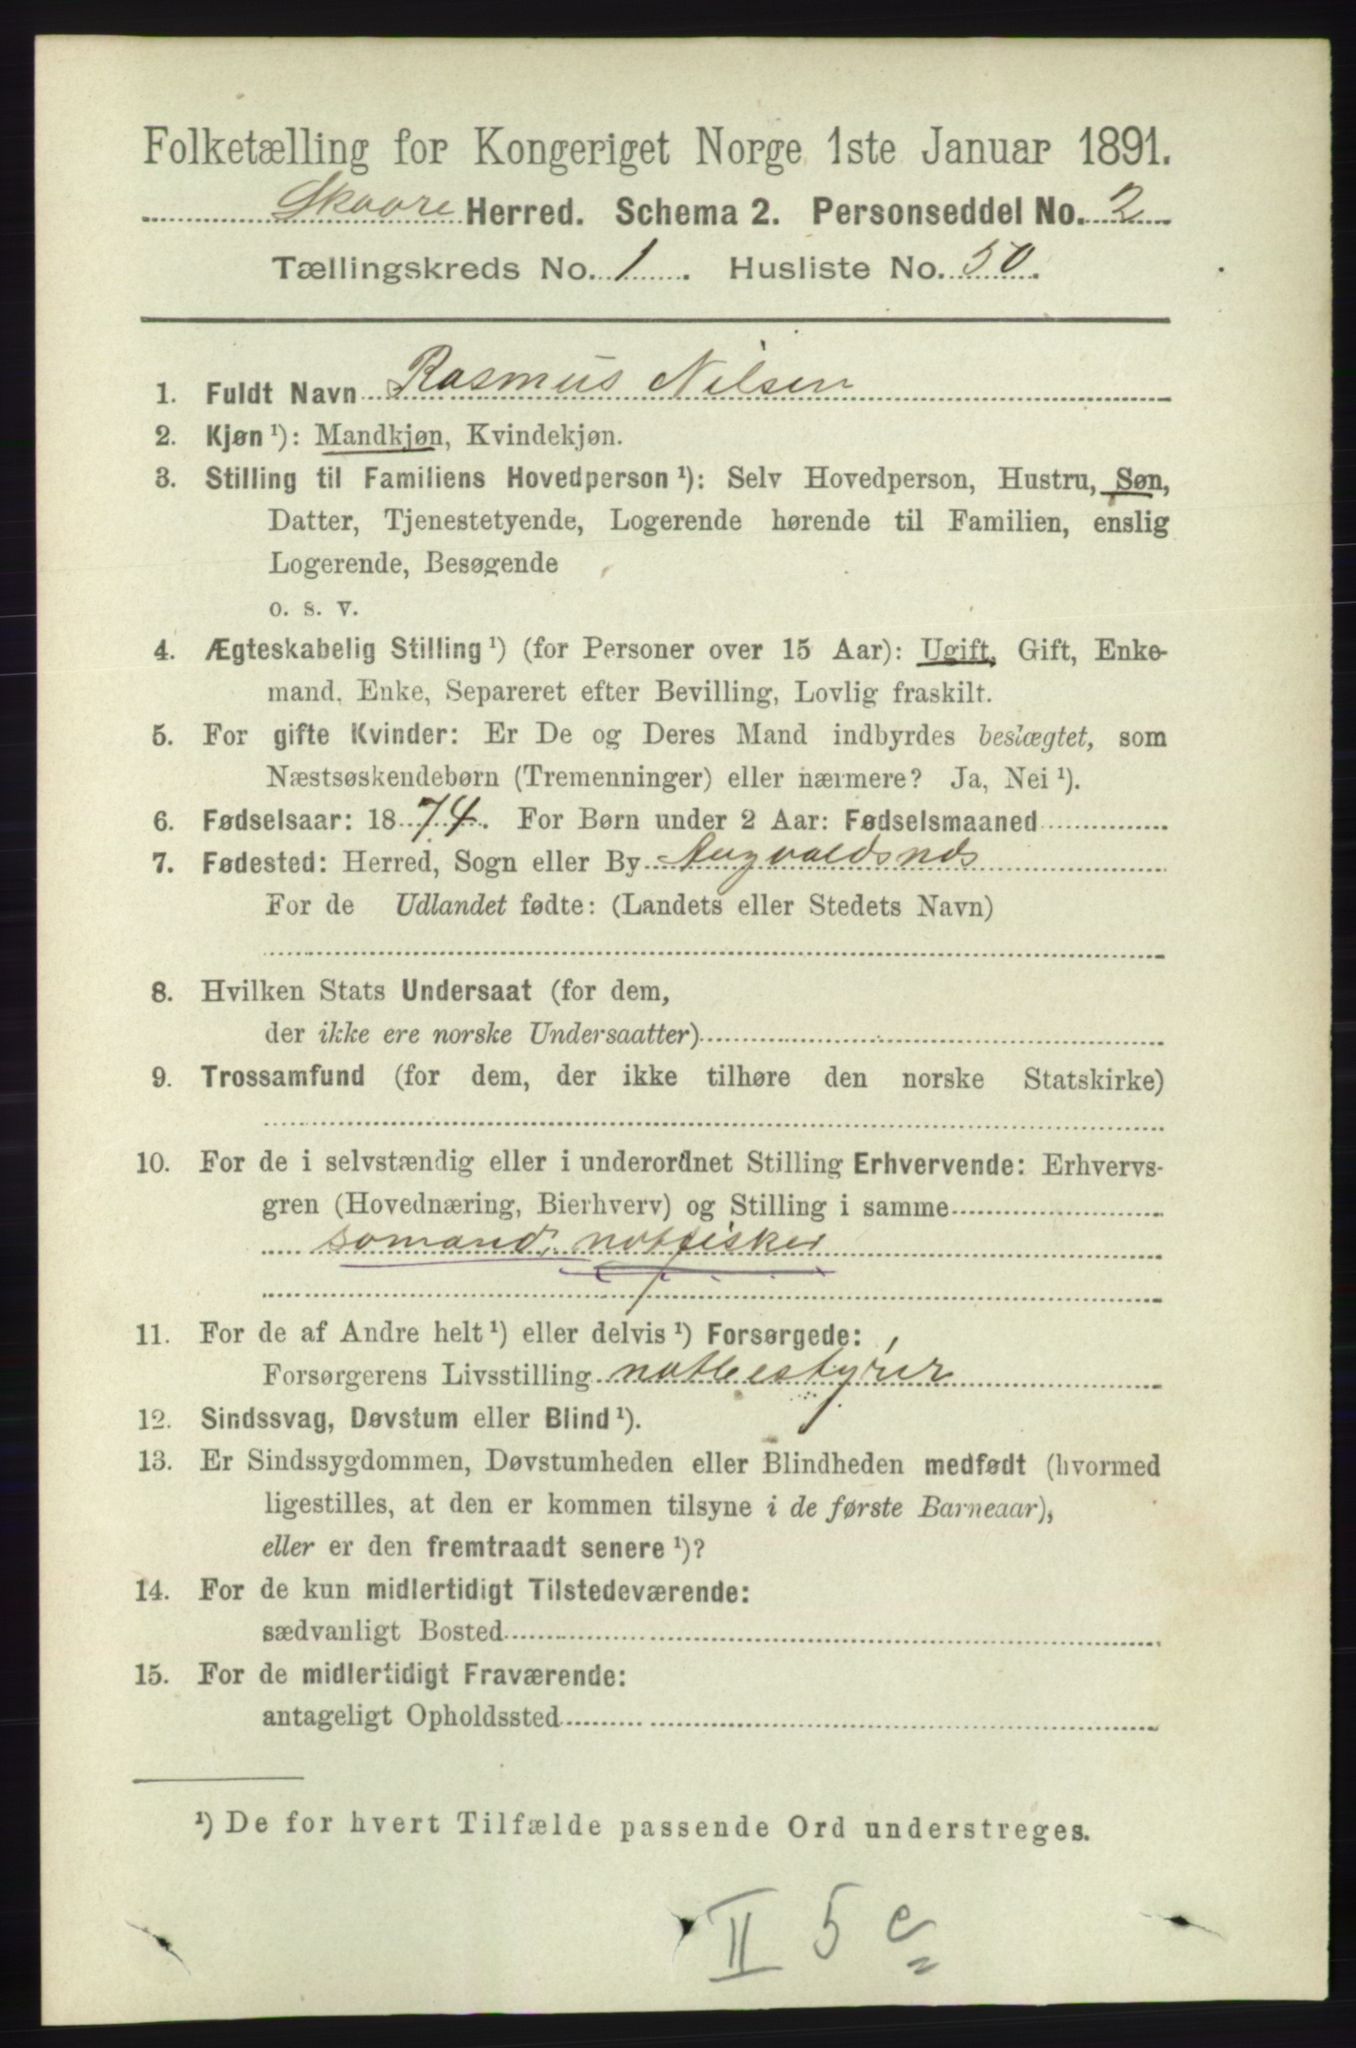 Folketælling for Kongeriget Norge 1ste Januar 1891.
Skaare Herred. Schema 2. Personseddel No. 2
Tællingskreds No. 1. Husliste No. 50.
1. Fuldt Navn Rasmus Nilsen
2. Kjøn ¹): Mandkjøn, Kvindekjøn.
3. Stilling til Familiens Hovedperson ¹): Selv Hovedperson, Hustru, Søn,
Datter, Tjenestetyende, Logerende hørende til Familien, enslig
Logerende, Besøgende
o. s. v.
4. Ægteskabelig Stilling ¹) (for Personer over 15 Aar): Ugift, Gift, Enke-
mand, Enke, Separeret efter Bevilling, Lovlig fraskilt.
5. For gifte Kvinder: Er De og Deres Mand indbyrdes beslægtet, som
Næstsøskendebørn (Tremenninger) eller nærmere? Ja, Nei ¹).
6. Fødselsaar: 1874. For Børn under 2 Aar: Fødselsmaaned
7. Fødested: Herred, Sogn eller By Augvaldsnds
For de Udlandet fødte: (Landets eller Stedets Navn)
8. Hvilken Stats Undersaat (for dem,
der ikke ere norske Undersaatter)
9. Trossamfund (for dem, der ikke tilhøre den norske Statskirke)
10. For de i selvstændig eller i underordnet Stilling Erhvervende: Erhvervs-
gren (Hovednæring, Bierhverv) og Stilling i samme
somand, notfisker
11. For de af Andre helt ¹) eller delvis ¹) Forsørgede:
Forsørgerens Livsstilling notbestyrer
12. Sindssvag, Døvstum eller Blind ¹).
13. Er Sindssygdommen, Døvstumheden eller Blindheden medfødt (hvormed
ligestilles, at den er kommen tilsyne i de første Barneaar),
eller er den fremtraadt senere ¹)?
14. For de kun midlertidigt Tilstedeværende:
sædvanligt Bosted
15. For de midlertidigt Fraværende:
antageligt Opholdssted
¹) De for hvert Tilfælde passende Ord understreges.
II 5 e